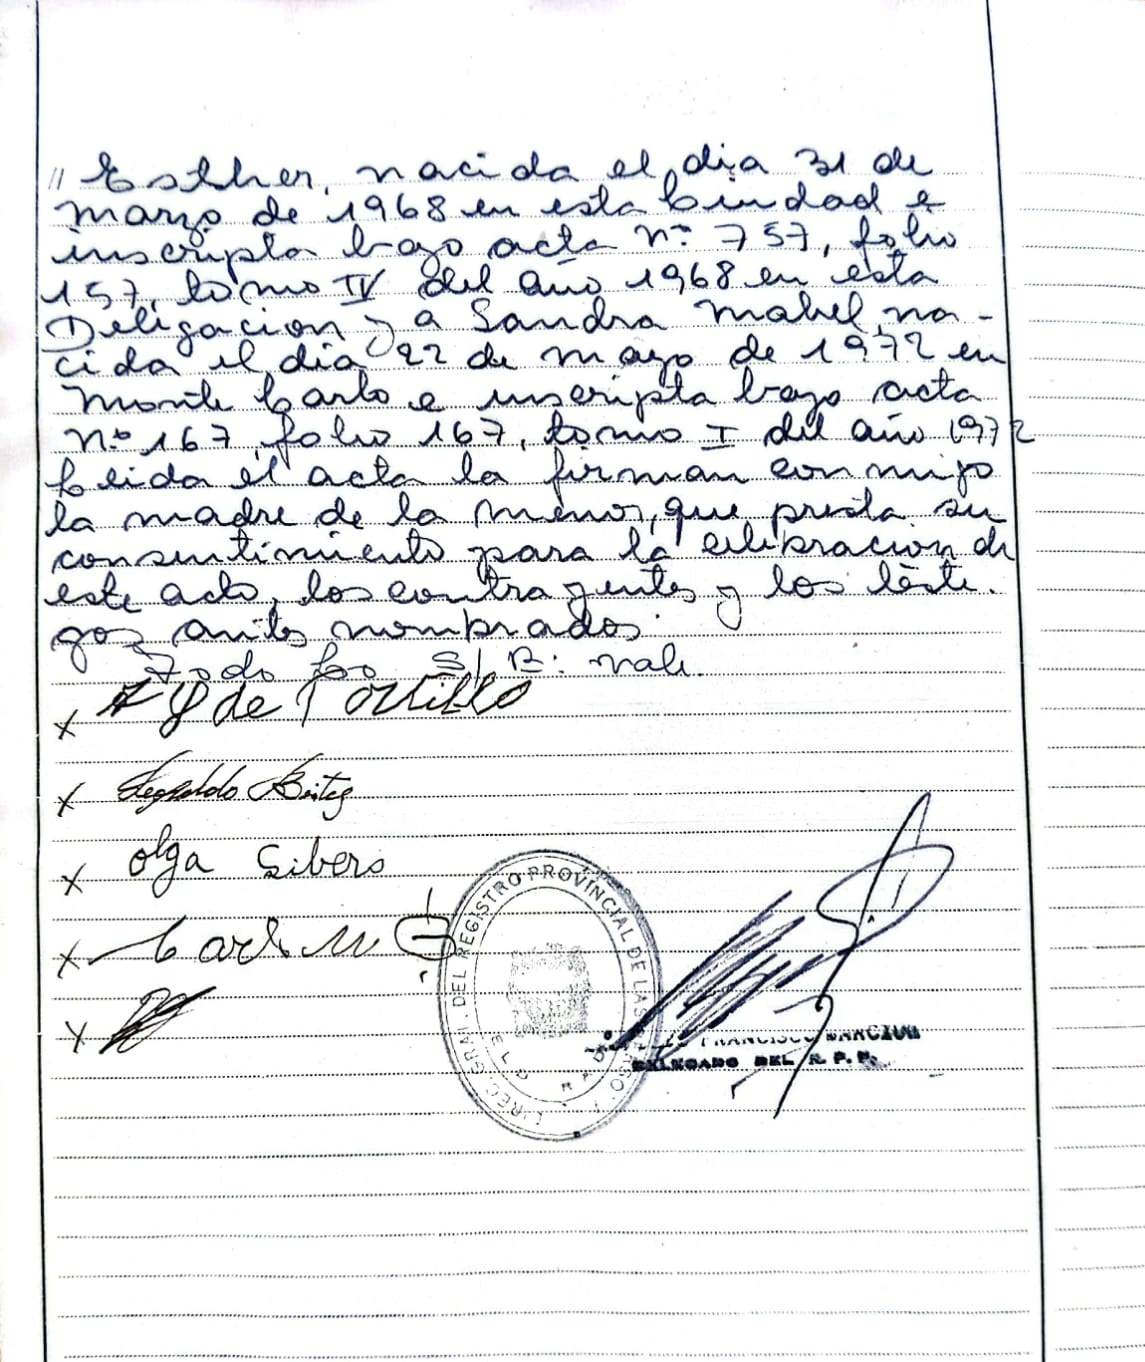 // Esther, nacida el dia 31 de
marzo de 1968 en esta Ciudad e
inscripta bajo acta nº 757, folio
157, tomo IV del año 1968 en esta
Delegacion y a Sandra Mabel, na-
cida el dia 22 de mayo de 1972 en
Monte Carlo e inscripta bajo acta
nº 167, folio 167, tomo I del año 1972
Leida el acta la firman conmigo
la madre de la menor, que presta su
consentimiento para la celebracion de
este acto, los contrayentes y los testi-
gos antes nombrados.
Todo lo S/B: vale.
x de Portillo
x Leopoldo Benitez
x olga Sibero
x Carlos
x
DIREC. GRAL. DEL REGISTRO PROVINCIAL DE LAS PERSONAS
ELDORADO
FRANCISCO
DELEGADO DEL R. P. P.